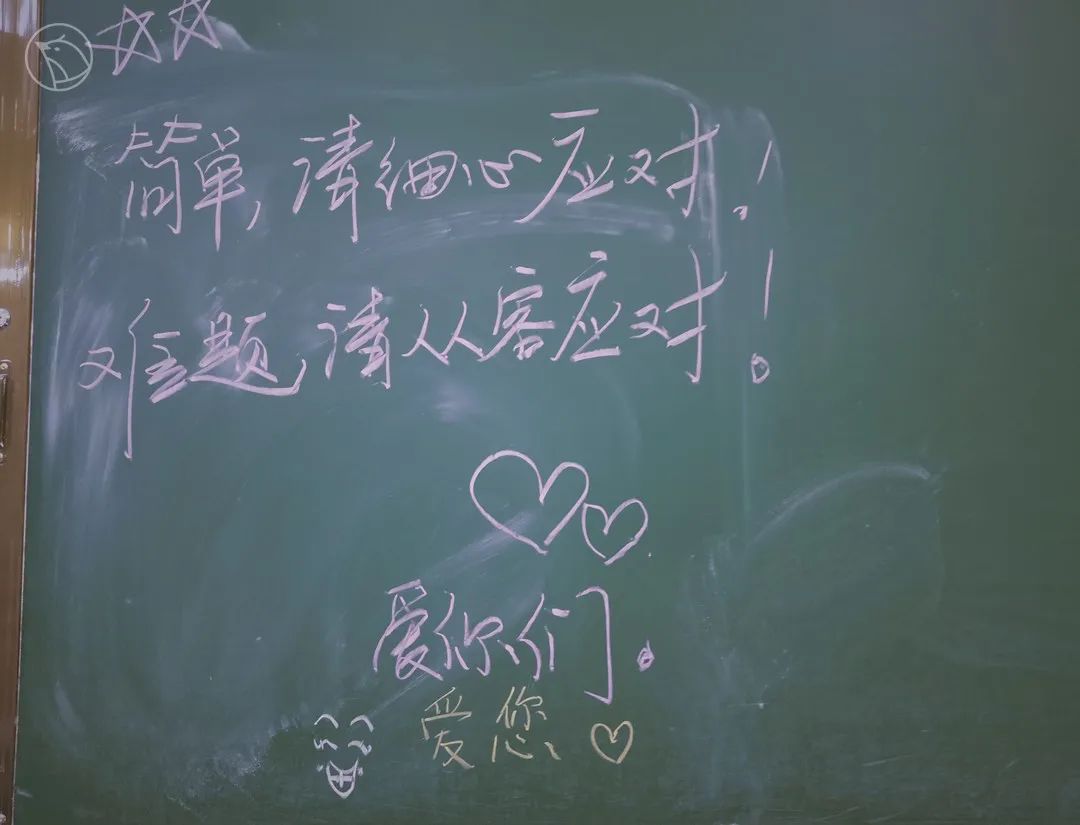 简单,请细心应对!
难题,请从容应对!
爱你们.
爱您、